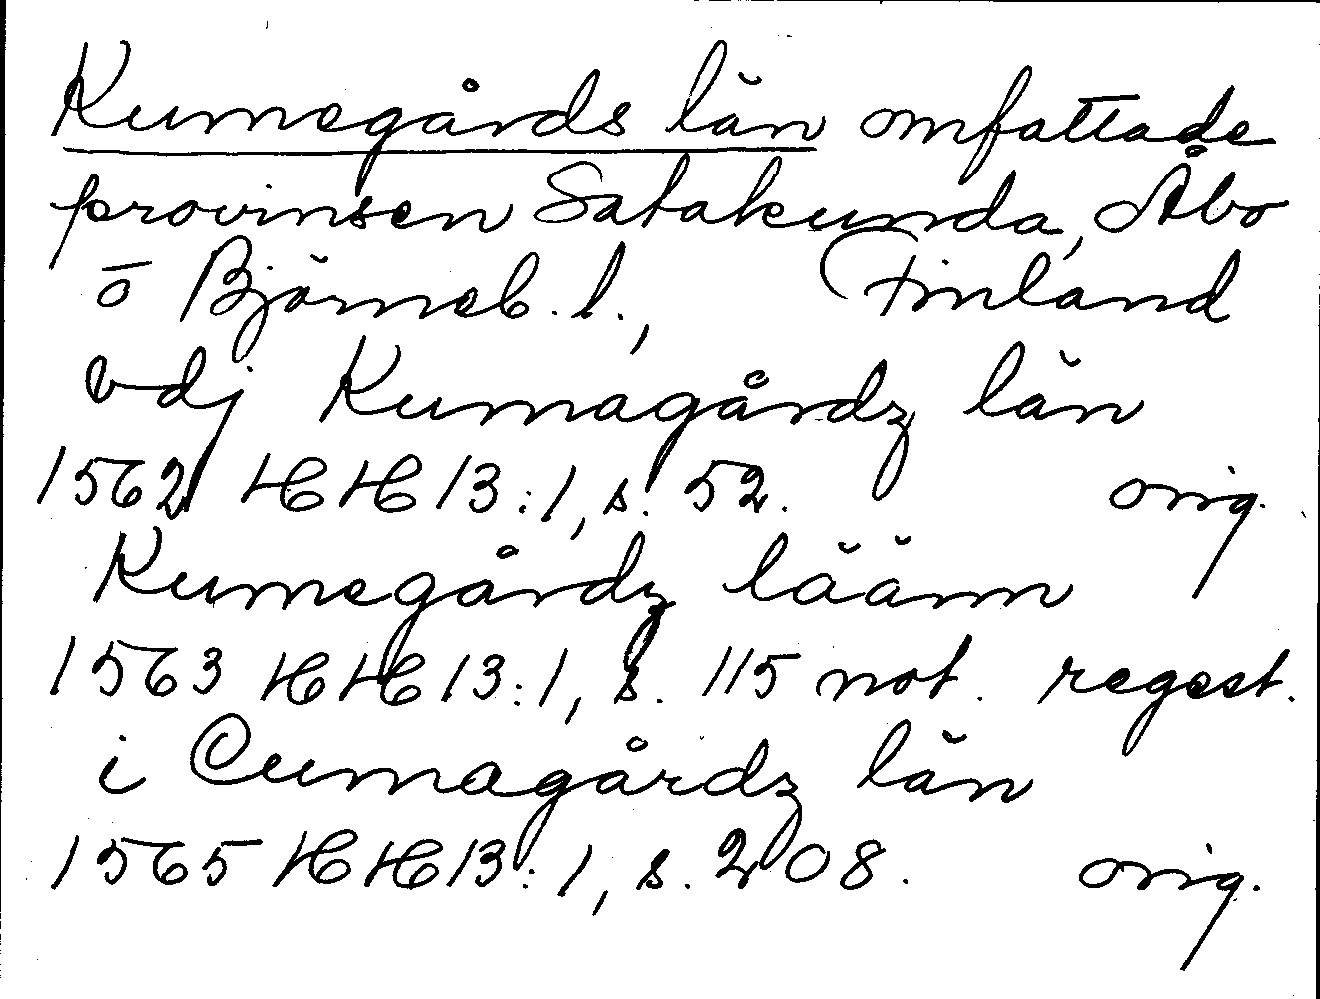 Kumogårds län omfattade
provinsen Satakunda, Åbo
o Björneb. l., Finland
vdj Kumagårdz län
1562 HH 13:1, s. 52. orig.
Kumegårdz läänn
1563 HH 13:1, s. 115 not. regest.
i Cumagårdz län
1565 HH 13:1, s. 208. orig.